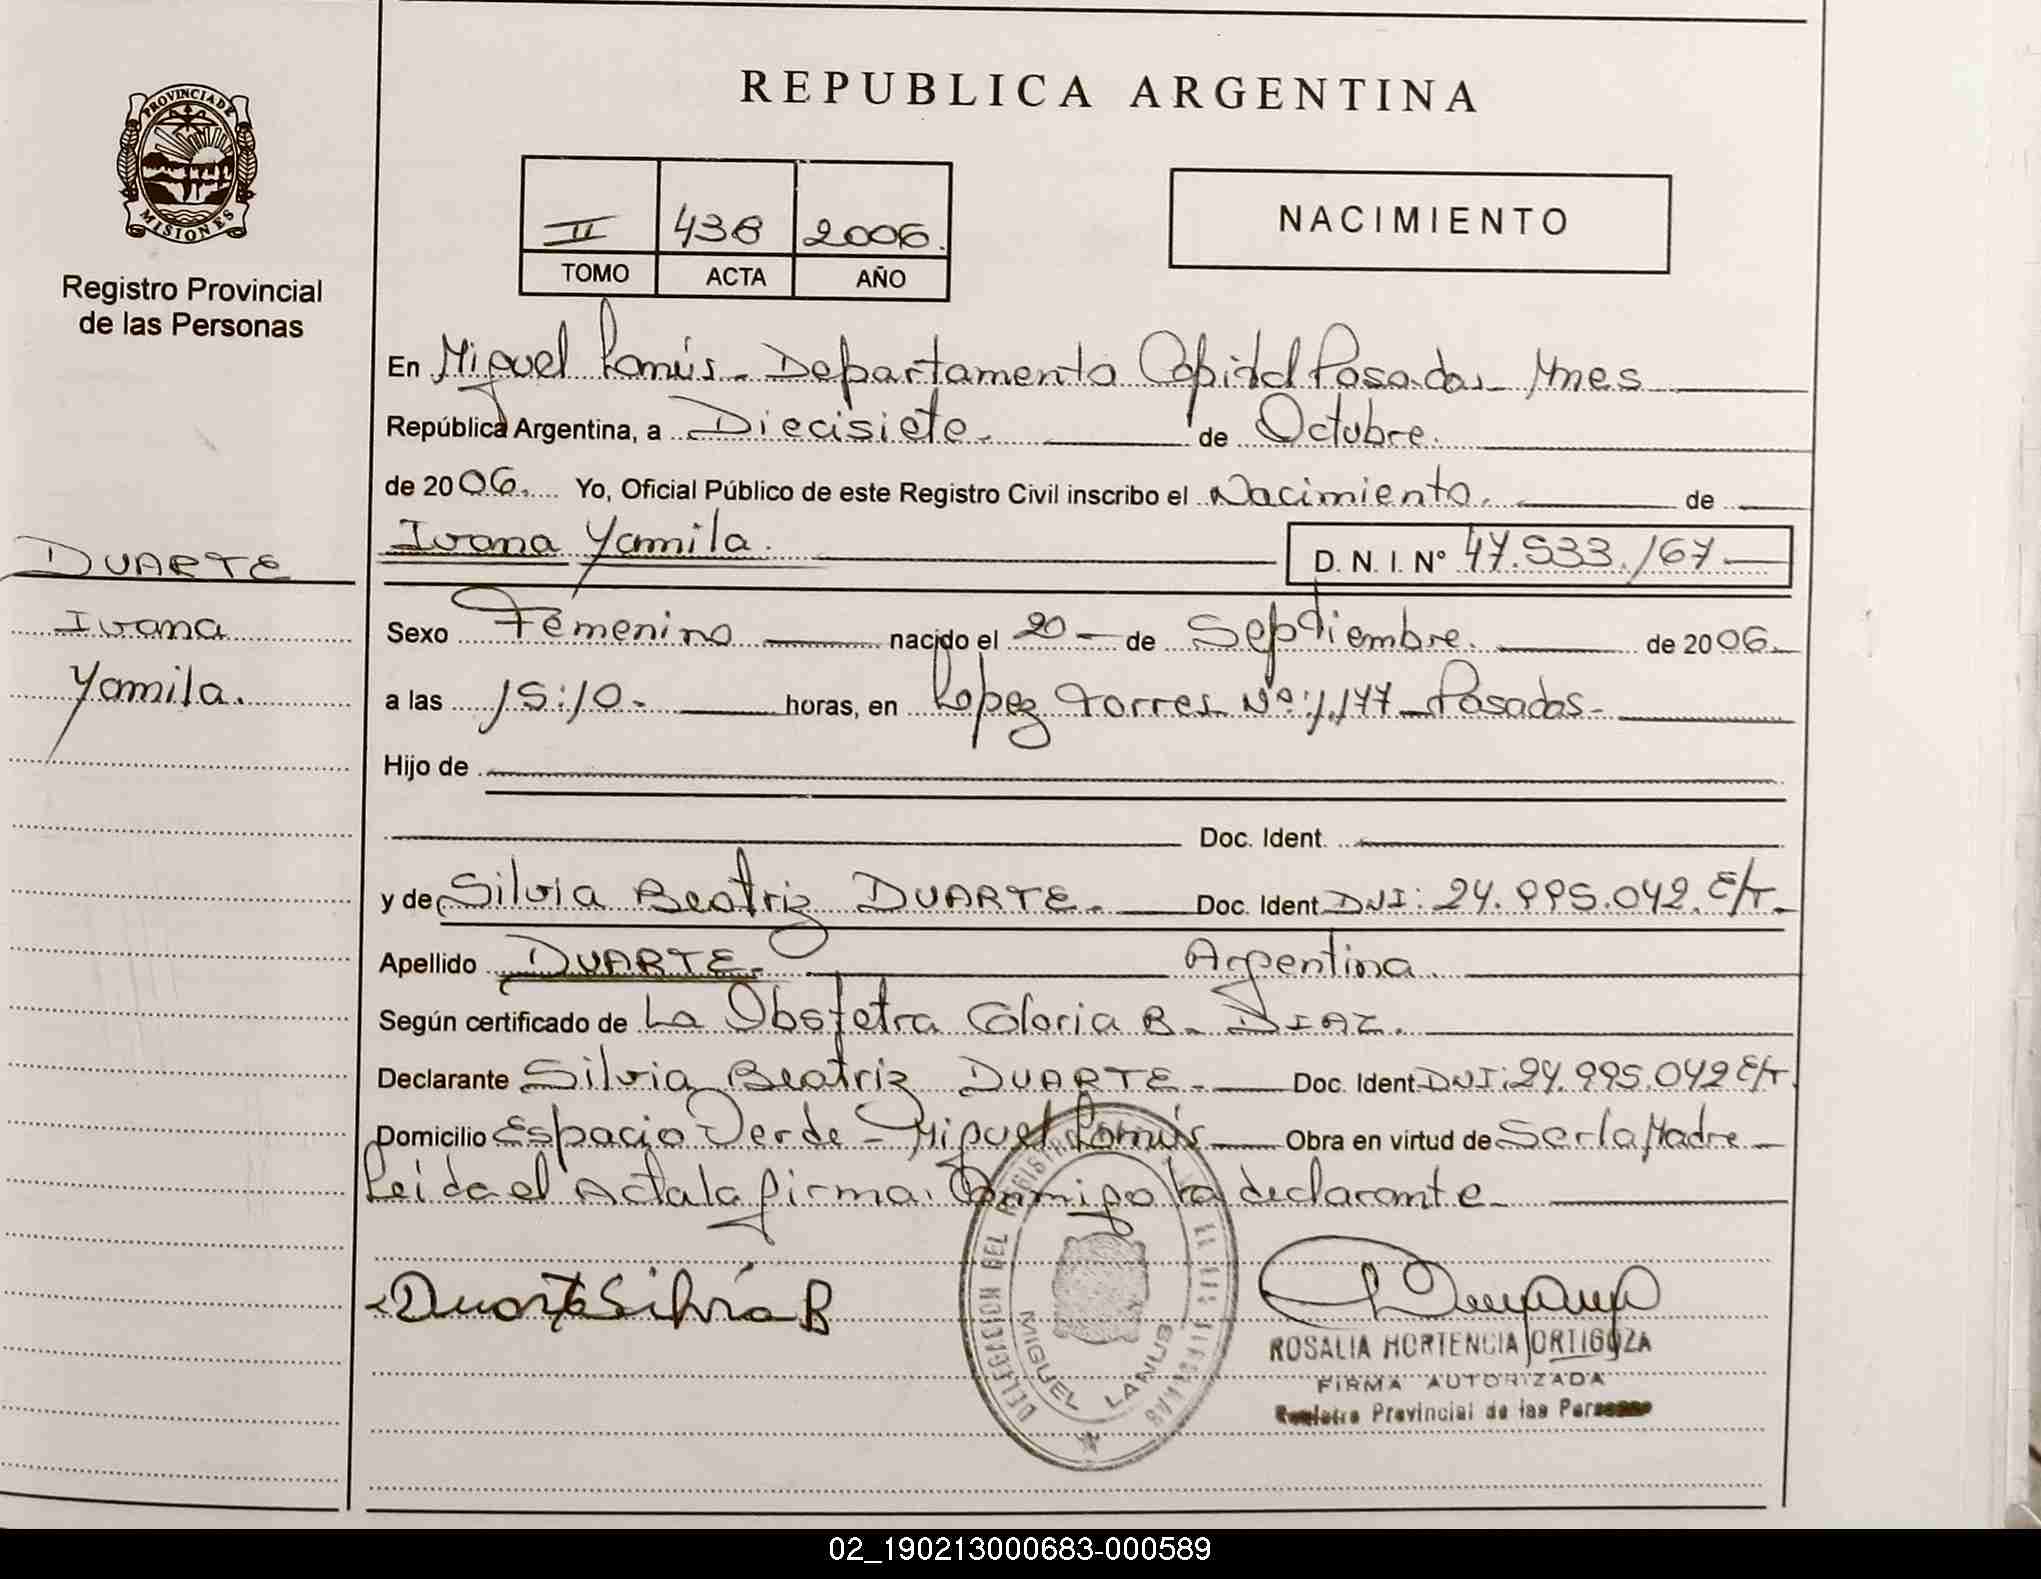 REPUBLICA ARGENTINA
PROVINCIA DE
MISIONES
Registro Provincial
de las Personas
II 438 2006.
TOMO ACTA AÑO
NACIMIENTO
En Miguel Lanús - Departamento Capital Posadas Mnes
República Argentina, a Diecisiete. de Octubre.
de 2006. Yo, Oficial Público de este Registro Civil inscribo el Nacimiento. de
DUARTE
Ivana
Yamila.
Ivana Yamila. D. N. I. Nº 47.533.167
Sexo Femenino nacido el 20 de Septiembre. de 2006.
a las 15:10. horas, en Lopez Torres Nº: 1.177 - Posadas -
Hijo de
Doc. Ident.
y de Silvia Beatriz DUARTE. Doc. Ident DNI: 24.995.042. E/T.
Apellido DUARTE. Argentina.
Según certificado de La Obstetra Gloria B. DIAZ.
Declarante Silvia Beatriz DUARTE. Doc. Ident DNI: 24.995.042 E/T.
Domicilio Espacio Verde - Miguel Lanús Obra en virtud de Ser la Madre
Leida el Acta la firma. Conmigo la declarante
Duarte Silvia B
DELEGACION DEL
MIGUEL LANUS
ROSALIA HORTENCIA ORTIGOZA
FIRMA AUTORIZADA
Registro Provincial de las Personas
02_190213000683-000589